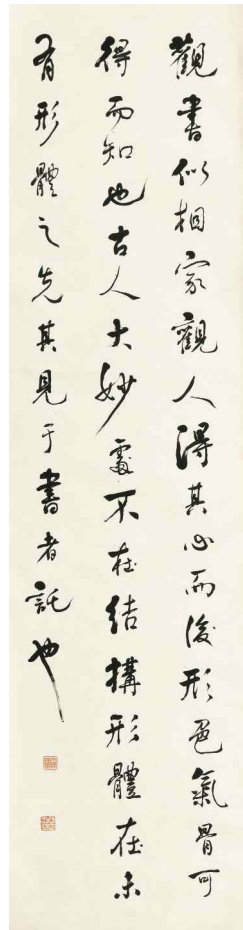 觀書似相家觀人得其心而後形色氣骨可
得而知也古人大妙處不在結構形體在未
有形體之先其見于書者託也